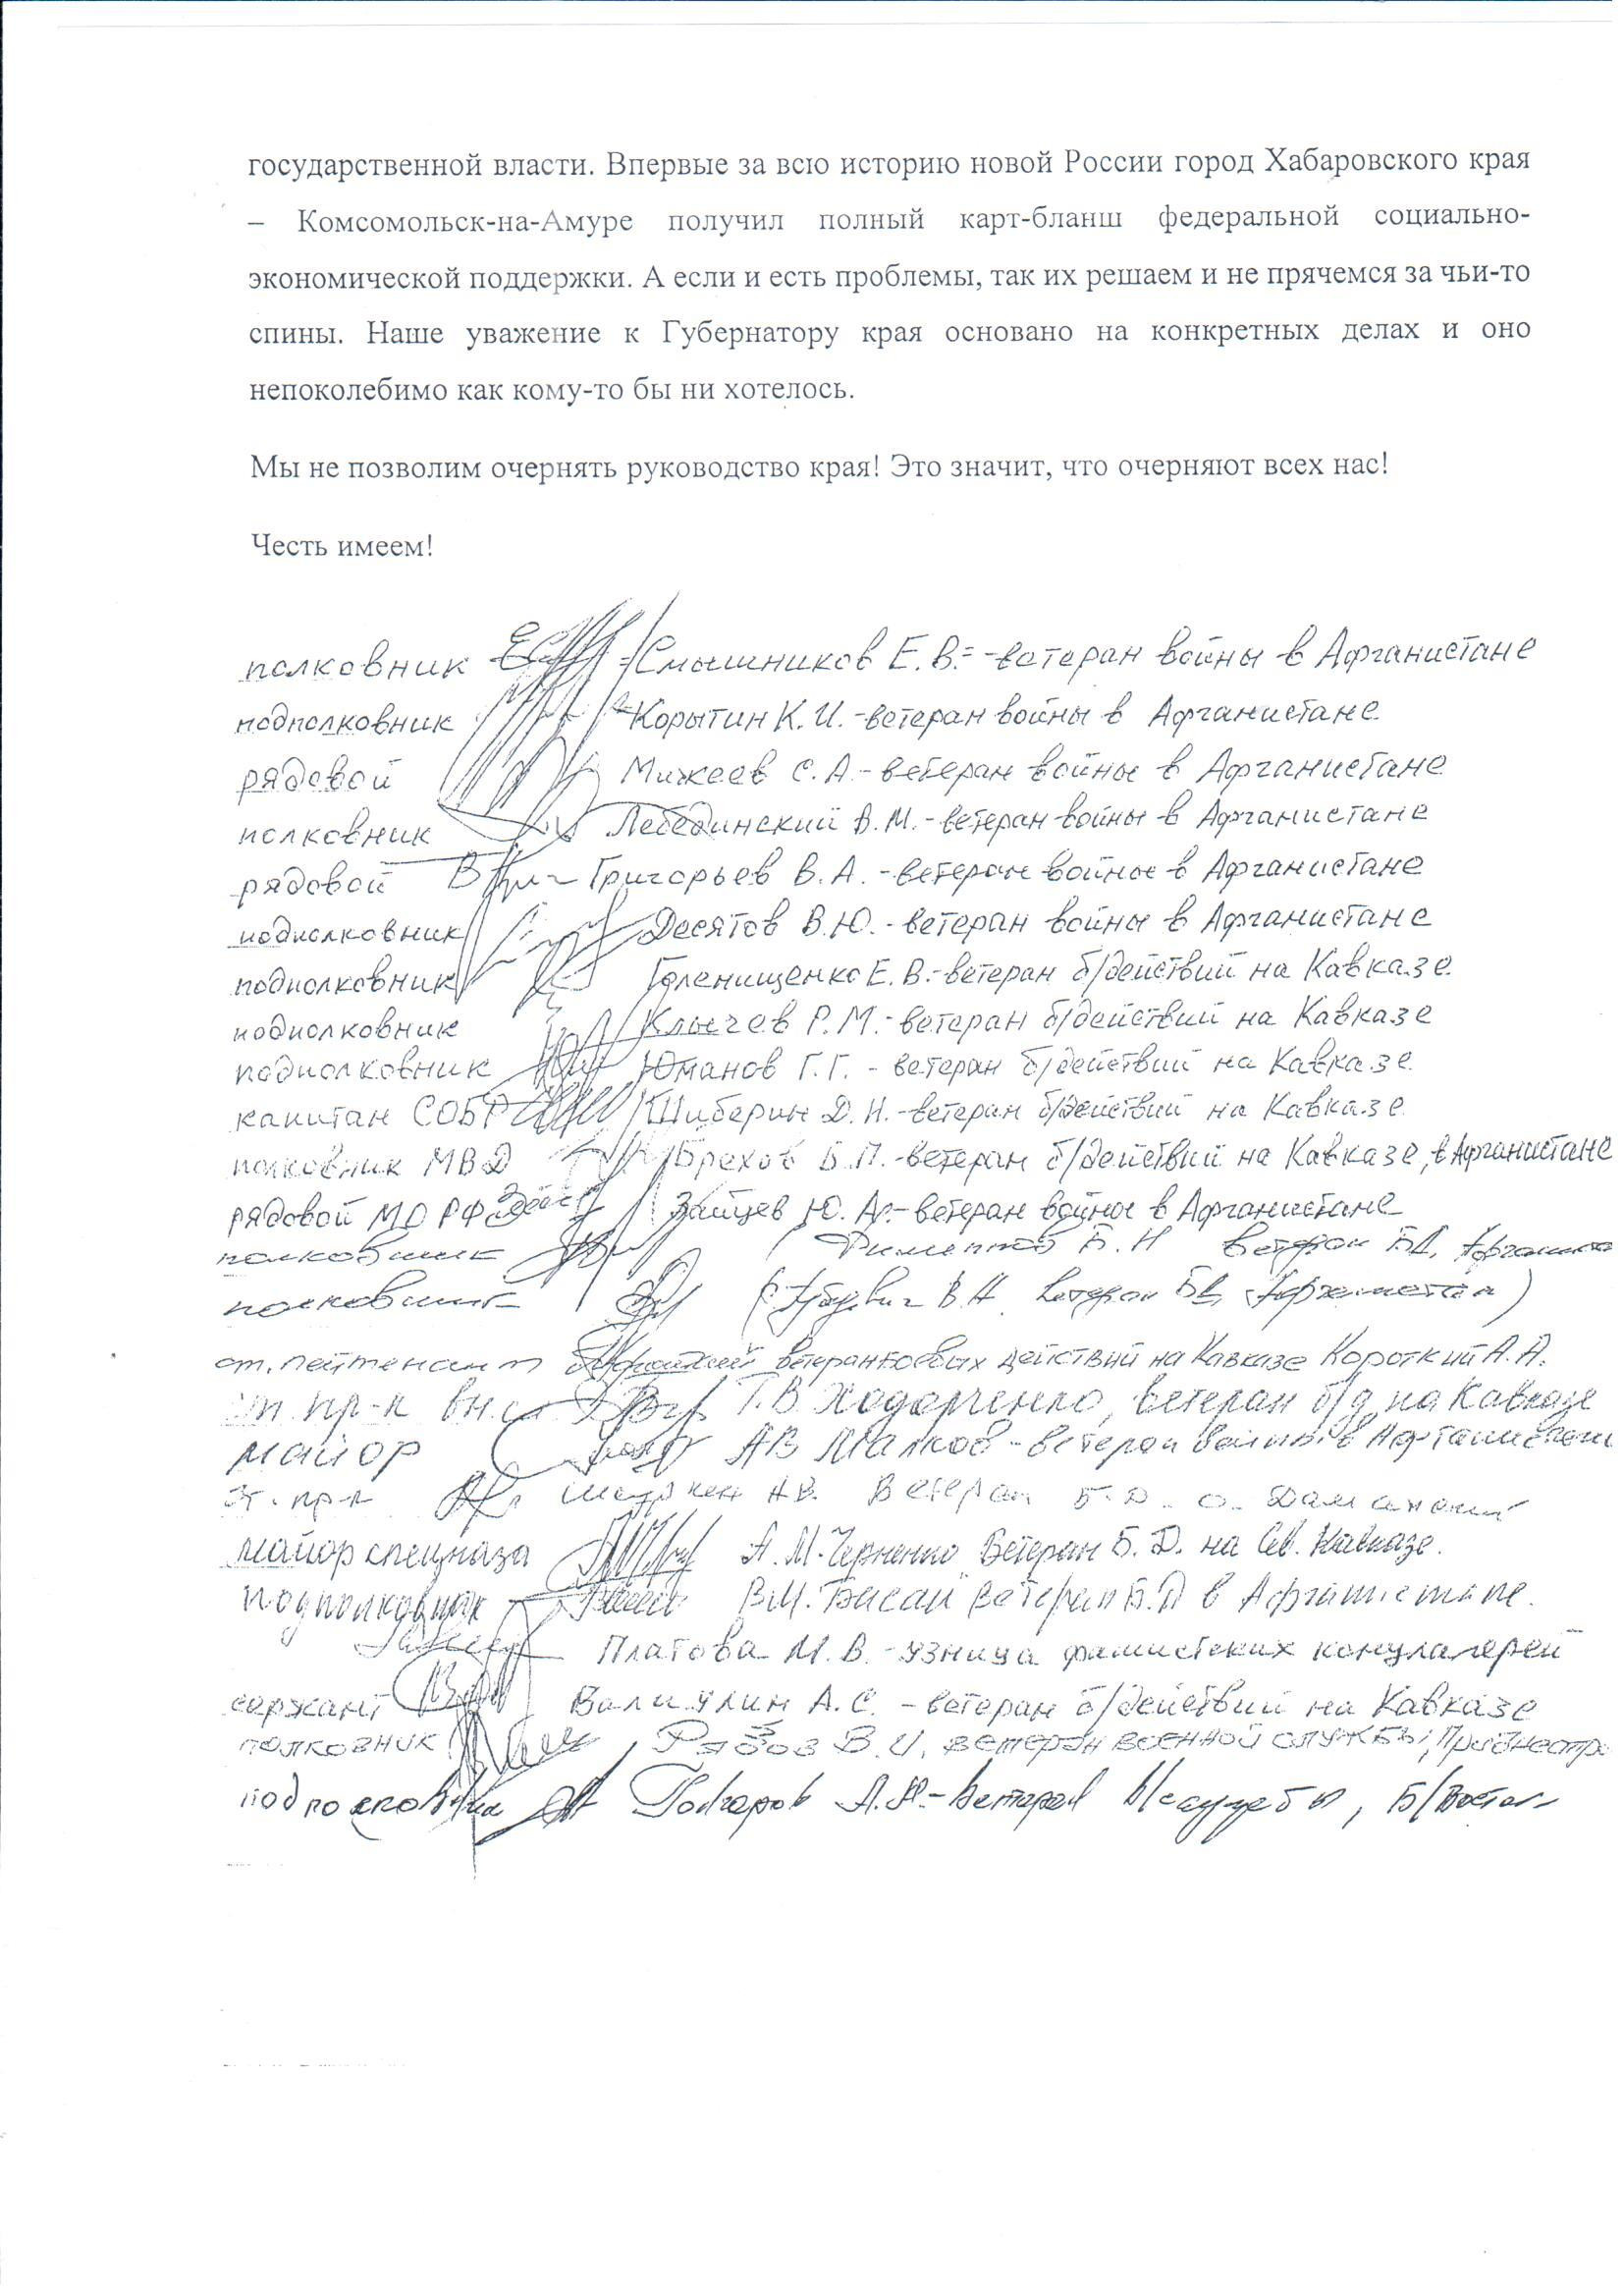 государственной власти. Впервые за всю историю новой России город Хабаровского края
– Комсомольск-на-Амуре получил полный карт-бланш федеральной социально-
экономической поддержки. А если и есть проблемы, так их решаем и не прячемся за чьи-то
спины. Наше уважение к Губернатору края основано на конкретных делах и оно
непоколебимо как кому-то бы ни хотелось.
Мы не позволим очернять руководство края! Это значит, что очерняют всех нас!
Честь имеем!
полковник Смышников Е.В. -ветеран войны в Афганистане
подполковник Корытин К.И.-ветеран войны в Афганистане
рядовой Михеев С.А.-ветеран войны в Афганистане
полковник Лебединский В.М.-ветеран войны в Афганистане
рядовой Григорьев В.А.-ветеран войны в Афганистане
подполковник Десятов В.Ю.-ветеран войны в Афганистане
подполковник Голенищенко Е.В.-ветеран б/действий на Кавказе
подполковник Клычев Р.М.-ветеран б/действий на Кавказе
подполковник Юманов Г.Г. - ветеран б/действий на Кавказе
капитан СОБР Шиберин Д.Н.-ветеран б/действий на Кавказе
полковник МВД Брехов Б.П.-ветеран б/действий на Кавказе, в Афганистане
рядовой МО РФ Зайцев Ю. -ветеран войны в Афганистане
полковник ветеран БД,
полковник В Н ветеран БД
ст. лейтенант ветеран боевых действий на Кавказе Короткий А.А.
ст. пр-к вн.сл Т.В Ходарченко, ветеран б/д на Кавказе
майор АВ Малков - ветеран войны в
Ст. пр-к Н.В. Ветеран Б.Д. о. Даманский
майор спецназа А.М.Черненко Ветеран Б.Д. на Сев. Кавказе.
подполковник В.М. Басай ветеран Б.Д в Афганистане.
Платова М.В.-узница фашистских концлагерей
сержант Валиулин А.С. - ветеран б/действий на Кавказе
полковник Рябов В.И. ветеран военной службы,
подполковник Гончаров А.Н.-Ветеран